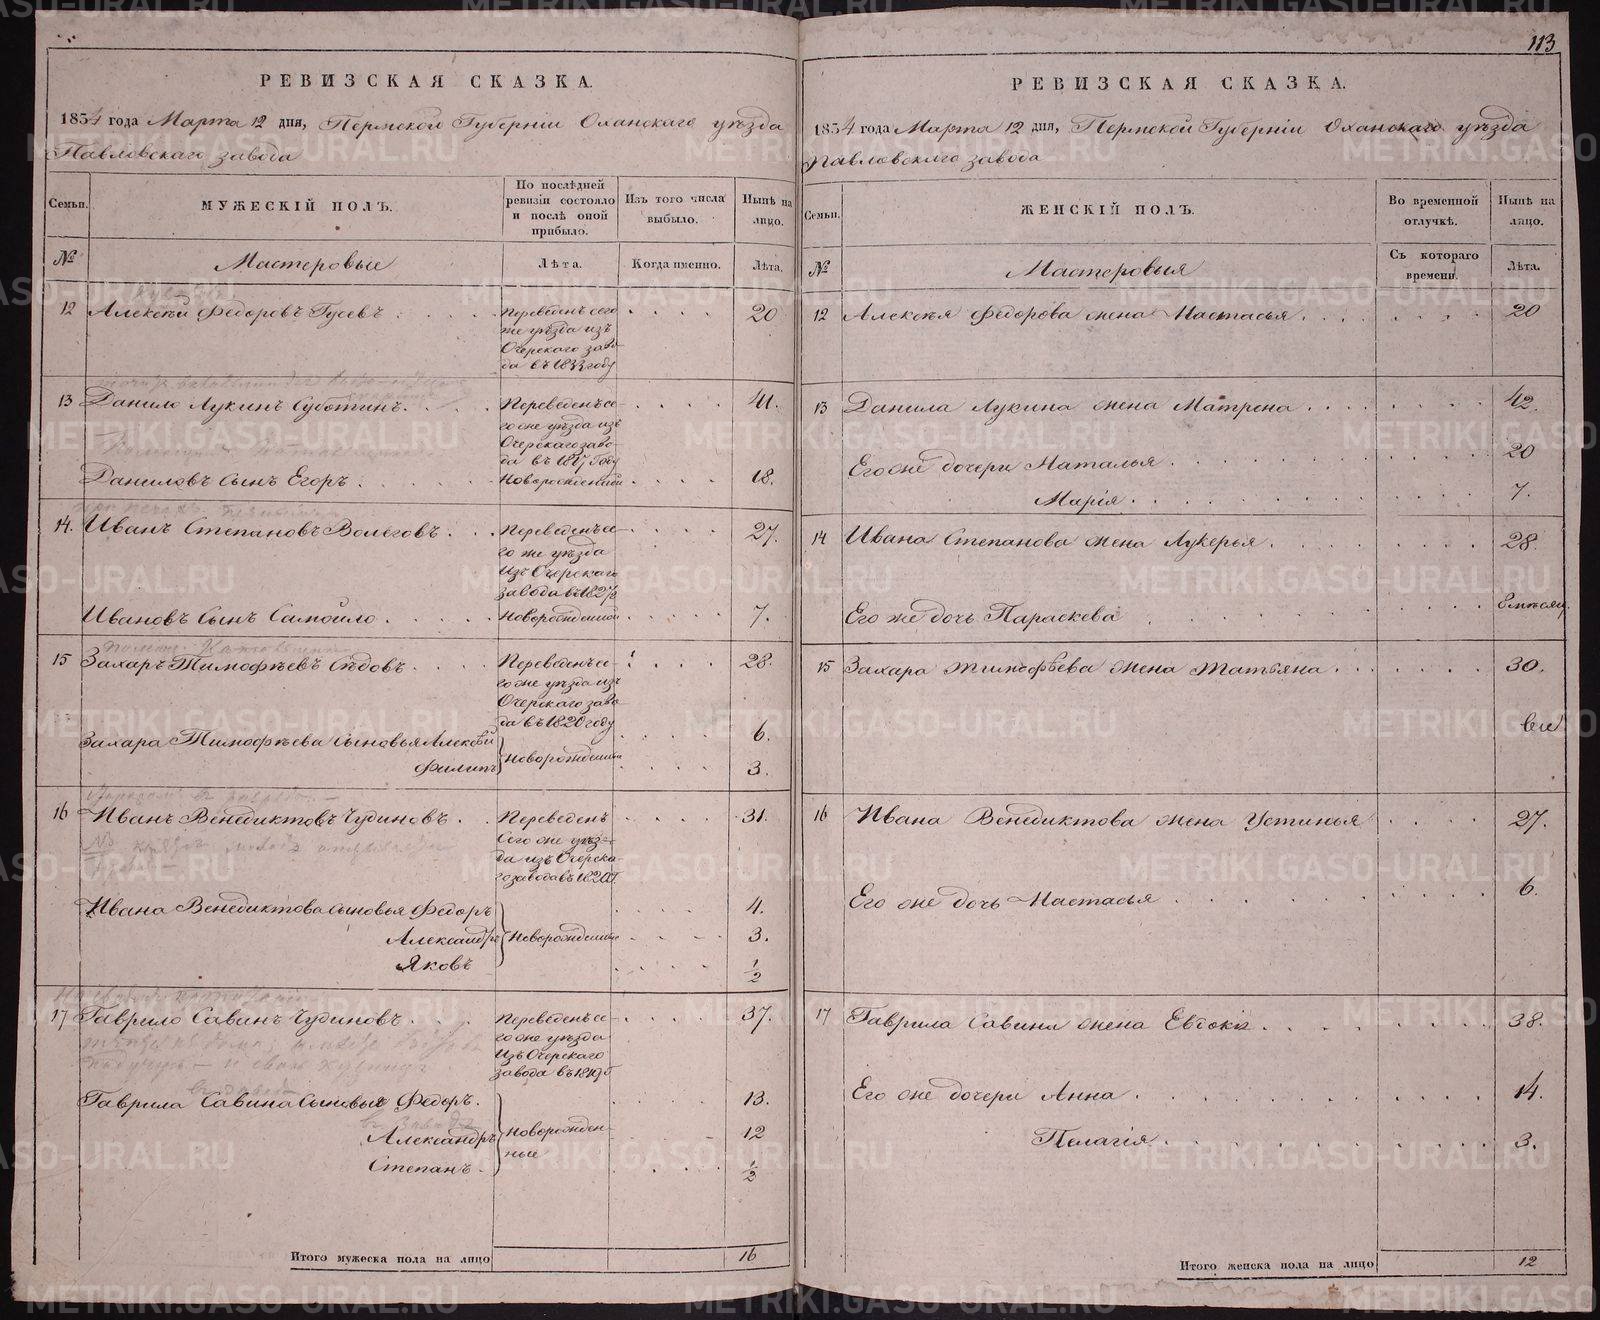 РЕВИЗСКАЯ СКАЗКА.
1834 года Марта 12 дня, Пермской Губерніи Оханскаго уѣзда
Павловскаго завода
Семьи.
МУЖЕСКІЙ ПОЛЪ.
По послѣдней ревизіи состояло и послѣ оной прибыло.
Изъ того числа выбыло.
Нынѣ на лицо.
№
Мастеровые
Лѣта.
Когда именно.
Лѣта.
12 Алексѣй Федоровъ Гусевъ . . . . Переведенъ сего . . . . 20
же уѣзда изъ
Очерскаго заво-
да въ 1833 году
13 Данило Лукинъ Суботинъ. . . . Переведенъ се- . . . . 41.
го же уѣзда изъ
Очерскаго заво-
да въ 1817 году
Даниловъ сынъ Егоръ . . . . . Новорожденный . . . . 18.
14. Иванъ Степановъ Волеговъ . . . Переведенъ се- . . . . 27.
го же уѣзда
Изъ Очерскаго
завода въ 182
Ивановъ Сынъ Самойло . . . . . Новорожденный . . . . 7.
15 Захаръ Тимофѣевъ Сѣдовъ. . . . Переведенъ се- . . . . 28.
го же уѣзда изъ
Очерскаго заво-
да въ 1820 году
Захара Тимофѣева Сыновья Алексѣй . . . . 6.
Филипъ Новорожденные . . . . 3.
16 Иванъ Венедиктовъ Чудиновъ . . Переведенъ . . . . 31.
Сего же уѣз-
да изъ Очерска-
го завода въ 1820 г.
Ивана Венедиктова сыновья Федоръ . . . . 4.
Александръ Новорожденные . . . . 3.
Яковъ . . . . 1/2
17 Гаврило Савинъ Чудиновъ . . . . Переведенъ се- . . . . 37.
го же уѣзда
Изъ Очерскаго
завода въ 1819 г
Гаврила Савина Сыновья Федоръ. . . . . 13.
Александръ Новорожден- . . . . 12
ные
Степанъ . . . . . 1/2
Итого мужеска пола на лицо 16
113
РЕВИЗСКАЯ СКАЗКА.
1834 года Марта 12 дня, Пермской Губерніи Оханскаго уѣзда
Павловскаго завода
Семьи.
ЖЕНСКІЙ ПОЛЪ.
Во временной отлучкѣ.
Нынѣ на лицо.
№
Мастеровыя
Съ котораго времени.
Лѣта.
12 Алексѣя Федорова жена Настасья . . . . . . . 20
13 Данила Лукина жена Матрена . . . . . . . 42.
Его же дочери Наталья . . . . . . . 20
Марія . . . . . . . 7.
14 Ивана Степанова жена Лукерья . . . . . . . 28.
Его же дочь Параскева . . . . . 8 мѣсяц.
15 Захара Тимофѣева жена Татьяна . . . . . . . 30.
16 Ивана Венедиктова жена Устинья . . . . 27.
Его же дочь Настасья . . . . . . . 6.
17 Гаврила Савина жена Евдокія . . . . . . . 38.
Его же дочери Анна . . . . . . . 14.
Пелагія . . . . . . . 3.
Итого женска пола на лицо 12
METRIKI.GASO-URAL.RU